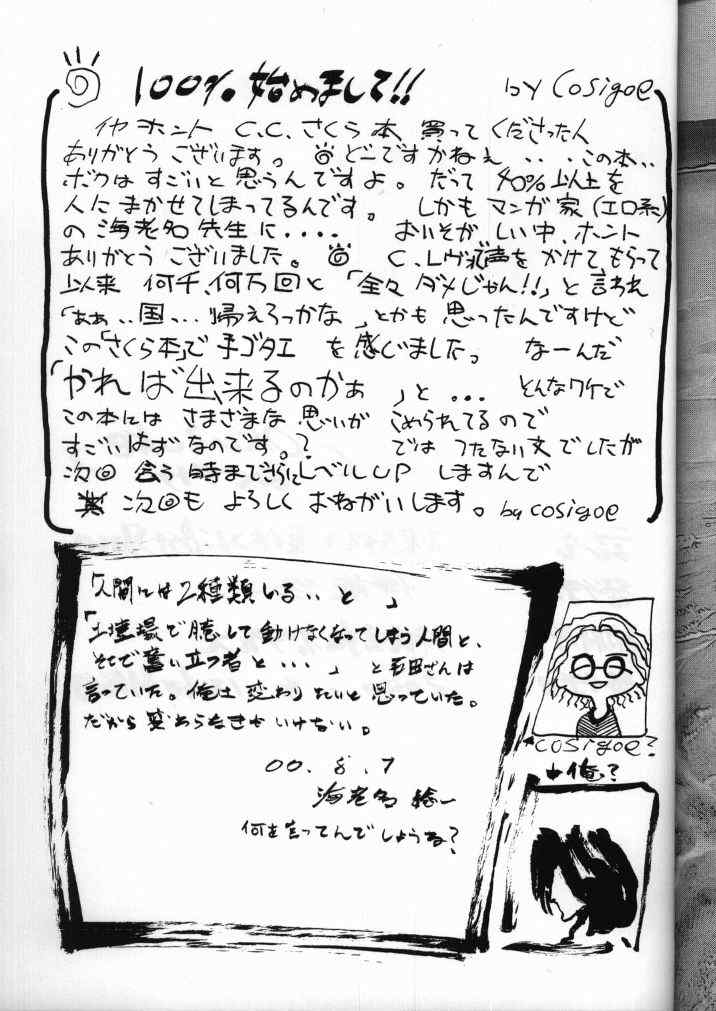 100% 始めまして!! by Cosigoe
イヤ ホント C.C.さくら本 買ってくださった人
ありがとう ございます。 どーですかねぇ ・・・この本・・
ボクは すごいと思うんですよ。 だって 40%以上を
人に まかせてしまってるんです。 しかも マンガ家(エロ系)
の 海老名先生に・・・・ おいそがしい中、ホント
ありがとう ございました。 声を かけて もらって
以来 何千、何万回と 「全々 ダメじゃん!!」と 言われ
「ああ・・国・・・帰えろっかな」とかも 思ったんですけど
この「さくら本」で 手ゴタエ を感じましたっ なーんだ
「やれば出来るのかぁ」と ・・・ とんなワケで
この本には さまざまな 思いが こめられてるので
すごいはずなのです。? では つたない文でしたが
次回 会う 時まで さらに レベルUP しますんで
次回も よろしく おねがいします。 by cosigoe
「人間には2種類いる・・と」
「土壇場で臆して動けなくなってしまう人間と、
そこで奮い立つ者と・・・」 と 毛田さんは
言っていた。俺は 変わりたいと思っていた。
だから変わらなきゃいけない。
00.8.7
海老名 総一
何を言ってんでしょうね?
cosigoe?
俺?